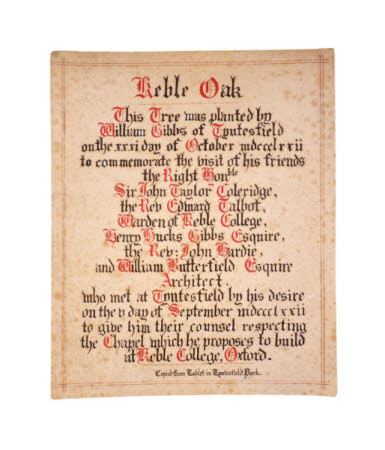 Keble Oak
This Tree was planted by
William Gibbs of Tyntesfield
on the xxxi day of October mdccclxxii
to commemorate the visit of his friends
the Right Honble
Sir John Taylor Coleridge,
the Rev Edward Talbot,
Warden of Keble College,
Henry Hucks Gibbs Esquire,
the Rev: John Hardie,
and William Butterfield Esquire
Architect
who met at Tyntesfield by his desire
on the v day of September mdccclxxii
to give him their counsel respecting
the Chapel which he proposes to build
at Keble College, Oxford.
Copied from Tablet in Tyntesfield Park.